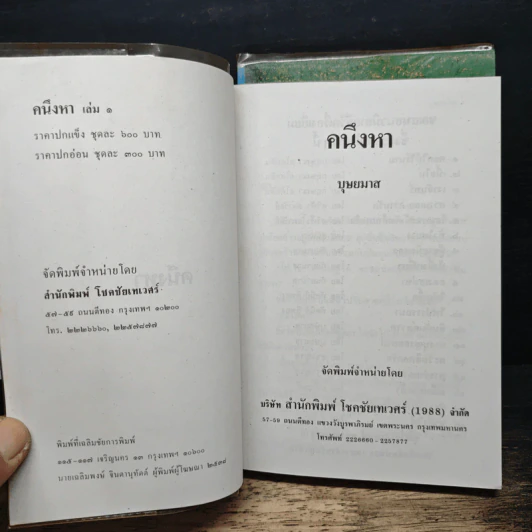 คนึงหา เล่ม ๑
ราคาปกแข็ง ชุดละ ๖๐๐ บาท
ราคาปกอ่อน ชุดละ ๓๐๐ บาท
จัดพิมพ์จำหน่ายโดย
สำนักพิมพ์ โชคชัยเทเวศร์
๕๗-๕๙ ถนนตีทอง กรุงเทพฯ ๑๐๒๐๐
โทร. ๒๒๒๖๖๖๐, ๒๒๕๗๘๗๗
พิมพ์ที่เฉลิมชัยการพิมพ์
๑๑๕-๑๑๗ เจริญนคร ๑๓ กรุงเทพฯ ๑๐๖๐๐
นายเฉลิมพงษ์ จินดานุทัตต์ ผู้พิมพ์ผู้โฆษณา ๒๕๓๗
คนึงหา
บุษยมาส
จัดพิมพ์จำหน่ายโดย
บริษัท สำนักพิมพ์ โชคชัยเทเวศร์ (1988) จำกัด
57-59 ถนนตีทอง แขวงวังบูรพาภิรมย์ เขตพระนคร กรุงเทพมหานคร
โทรศัพท์ 2226660 - 2257877